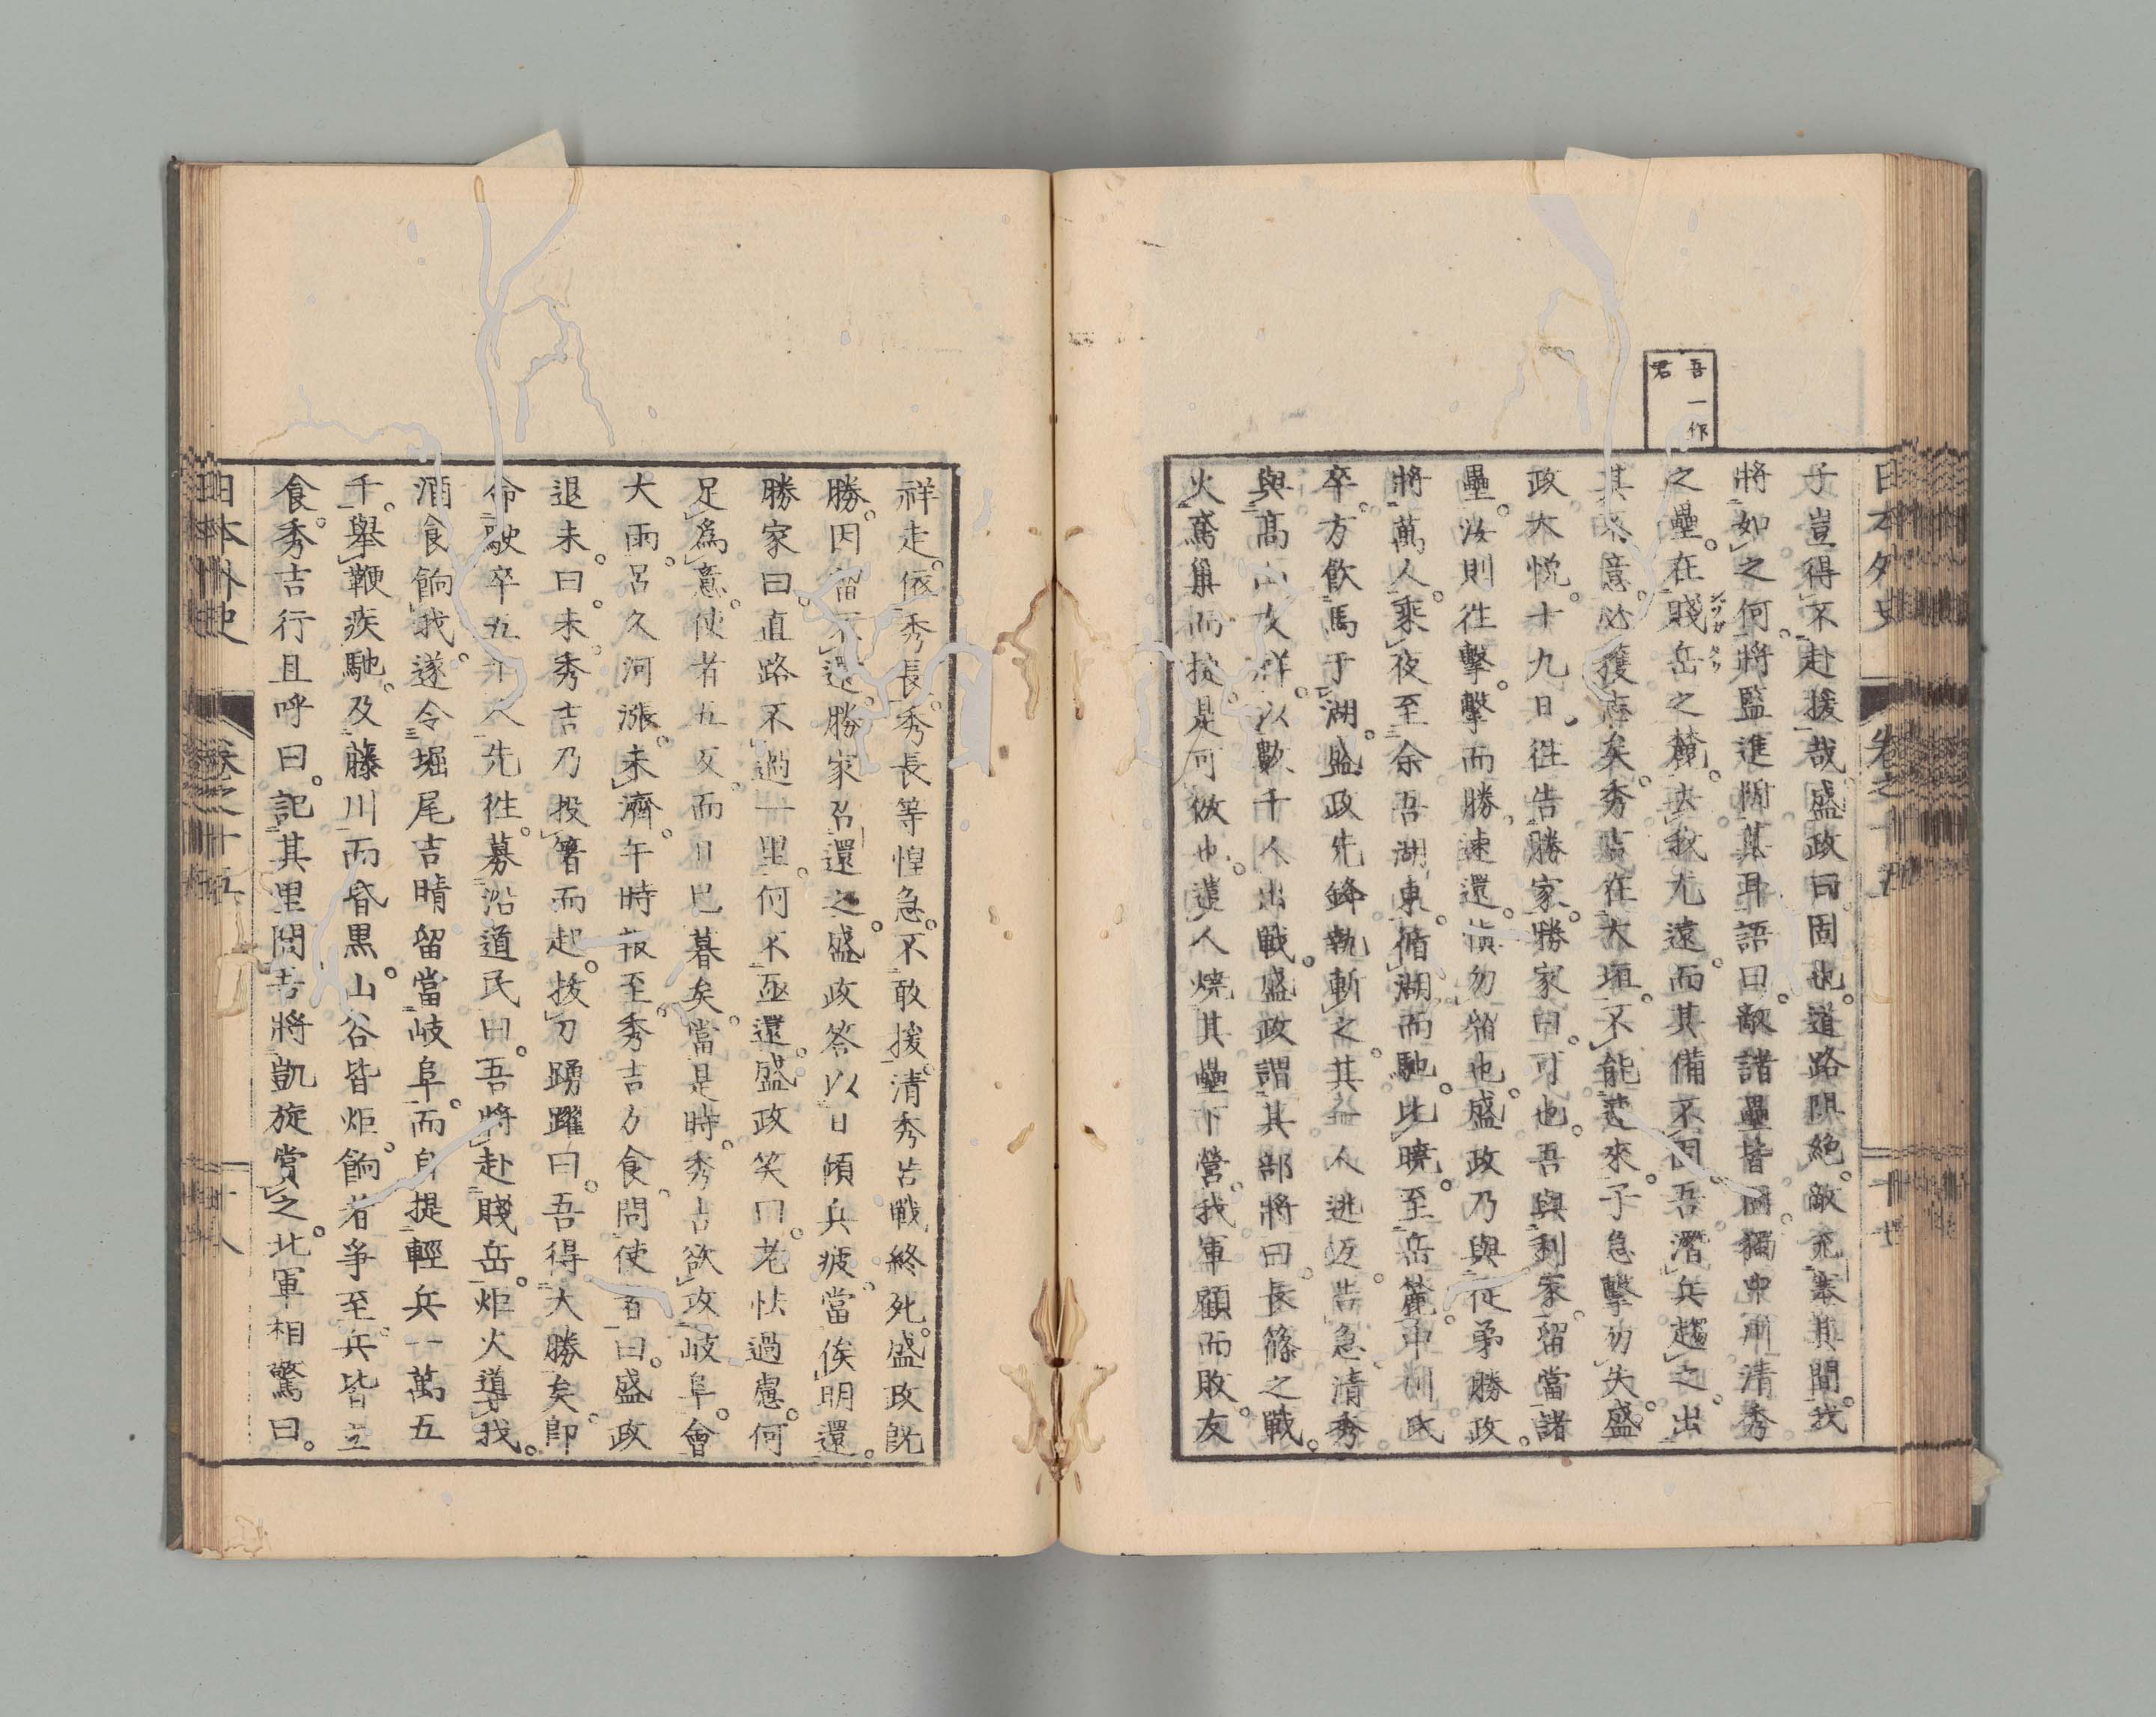 日本外史
卷之十五
十七
吾一作
君
子豈得不赴援哉盛政曰固也道路隕絶敵充塞其間我
將如之何將監進閉其耳語曰敵諸壘皆固獨中川清秀
之壘在賤岳之麓去我尤遠而其備不固吾潛兵趨之出
其不意必獲志矣秀吉在大垣不能遽來子急擊勿失盛
政大悅十九日往告勝家勝家曰可也吾與利家留當諸
壘汝則往擊擊而勝速還愼勿留也盛政乃與從弟勝政
將萬人乘夜至余吾湖東循湖而馳比曉至岳麓中川氏
卒方飲馬于湖盛政先鋒執斬之其一人逃返告急清秀
與高山友祥以數千人出戰盛政謂其部將曰長篠之戰
火鳶巢而挍是可倣也遣人燒其壘下營我軍顧而敗友
祥走依秀長秀長等惶急不敢援清秀苦戰終死盛政既
勝因留不還勝家召還之盛政答以日傾兵疲當俟明還
勝家曰直路不過十里何不亟還盛政笑曰老怯過慮何
足爲意使者五反而日已暮矣當是時秀吉欲攻岐阜會
大雨呂久河漲未濟午時報至秀吉方食問使者曰盛政
退未曰未秀吉乃投箸而起拔刀踴躍曰吾得大勝矣卽
命駛卒五十人先往募沿道民曰吾將赴賤岳炬火導我
酒食餉我遂令堀尾吉晴留當岐阜而自提輕兵一萬五
千舉鞭疾馳及藤川而昏黒山谷皆炬餉者爭至兵皆立
食秀吉行且呼曰記其里閭吾將凱旋賞之北軍相驚曰
日本外史
卷之十五
十八